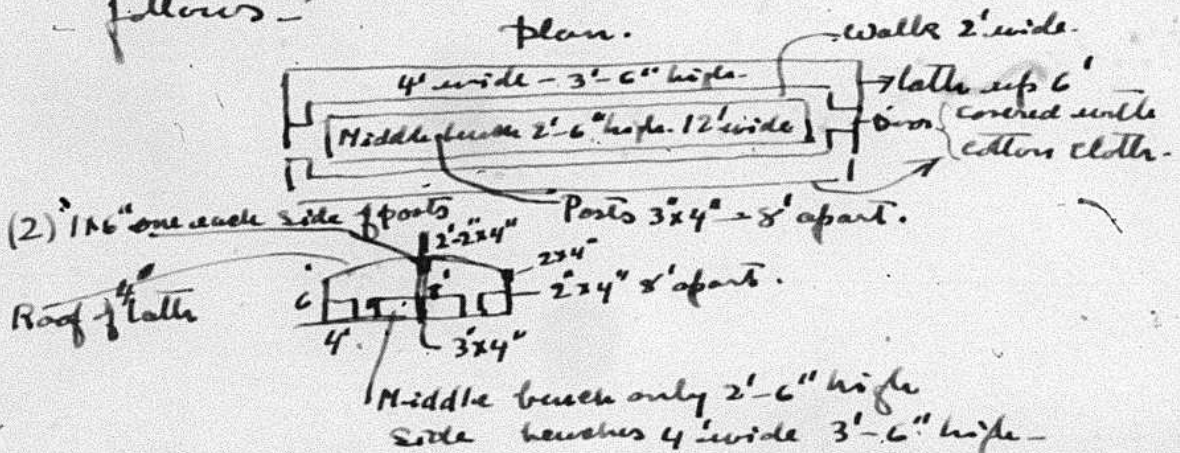 follows -
Plan.
Walks 2' wide.
4' wide - 3'-6" high.
lath up 6'
Middle bench 2'-6" high. 12' wide
Door { covered with
cotton cloth.
Posts 3"x4" - 8' apart.
(2) 1x6" one each side of posts
2'-2x4"
2x4"
2"x4" 8' apart.
6'
8'
Roof of 4" lath
4'
3"x4"
Middle bench only 2'-6" high
Side benches 4' wide 3'-6" high -